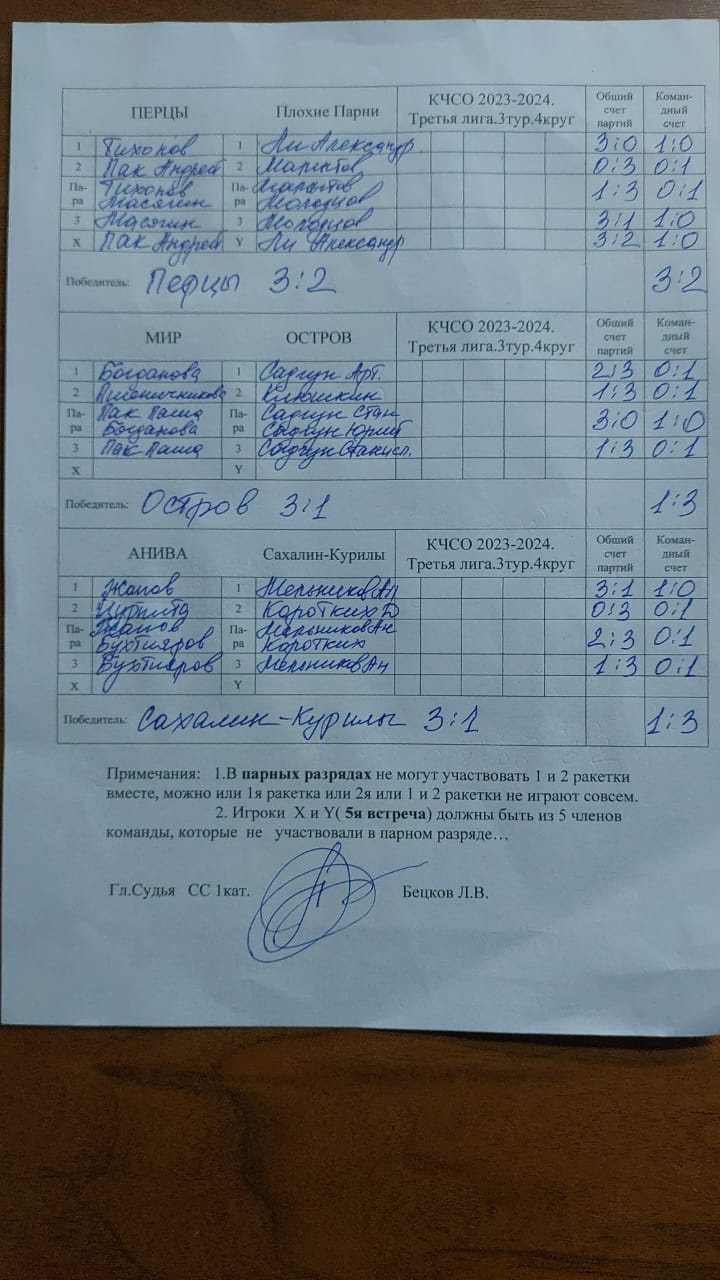 ПЕРЦЫ Плохие Парни КЧСО 2023-2024. Третья лига.3тур.4круг Общий счет партий Коман-дный счет
1 Тихонов 1 Ли Александр 3:0 1:0
2 Пак Андрей 2 0:3 0:1
Па-ра Тихонов Масягин Па-ра Молодцов 1:3 0:1
3 Масягин 3 Молодцов 3:1 1:0
X Пак Андрей Y Ли Александр 3:2 1:0
Победитель: Перцы 3:2 3:2
МИР ОСТРОВ КЧСО 2023-2024. Третья лига.3тур.4круг Общий счет партий Коман-дный счет
1 Богданова 1 Садгун Арт. 2:3 0:1
2 Пшеничникова 2 Клюшкин 1:3 0:1
Па-ра Пак Паша Богданова Па-ра Садгун Стан Юрий 3:0 1:0
3 Пак Паша 3 Садгун 1:3 0:1
X Y
Победитель: Остров 3:1 1:3
АНИВА Сахалин-Курилы КЧСО 2023-2024. Третья лига.3тур.4круг Общий счет партий Коман-дный счет
1 Жапов 1 Мельников Ан 3:1 1:0
2 2 Коротких D 0:3 0:1
Па-ра Жапов Бухтияров Па-ра Мельников Ан Коротких 2:3 0:1
3 Бухтияров 3 Мельников Ан 1:3 0:1
X Y
Победитель: Сахалин-Курилы 3:1 1:3
Примечания: 1.В парных разрядах не могут участвовать 1 и 2 ракетки
вместе, можно или 1я ракетка или 2я или 1 и 2 ракетки не играют совсем.
2. Игроки X и Y( 5я встреча) должны быть из 5 членов
команды, которые не участвовали в парном разряде…
Гл.Судья СС 1кат. Бецков Л.В.